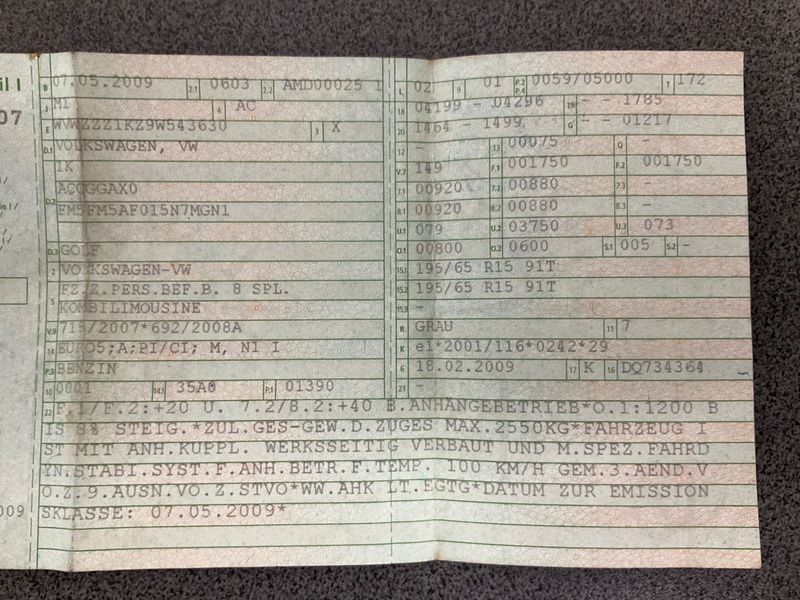 il I
07
009
B 07.05.2009 2.1 0603 2.2 AMD00025 1
J M1 4 AC
E WVWZZZ1KZ9W543630 3 X
D.1 VOLKSWAGEN, VW
1K
D.2 ACCGGAX0
FM5FM5AF015N7MGN1
D.3 GOLF
2 VOLKSWAGEN-VW
5 FZ.Z.PERS.BEF.B. 8 SPL.
KOMBILIMOUSINE
V.9 715/2007*692/2008A
14 EURO5;A;PI/CI; M, N1 I
P.3 BENZIN
10 0001 14.1 35A0 P.1 01390
L 02 9 01 P.2 P.4 0059/05000 T 172
18 04199 - 04296 19 - - 1785
20 1464 - 1499 G - - 01217
12 - 13 00075 Q -
V.7 149 F.1 001750 F.2 001750
7.1 00920 7.2 00880 7.3 -
8.1 00920 8.2 00880 8.3 -
U.1 079 U.2 03750 U.3 073
O.1 00800 O.2 0600 S.1 005 S.2 -
15.1 195/65 R15 91T
15.2 195/65 R15 91T
15.3 -
R GRAU 11 7
K e1*2001/116*0242*29
6 18.02.2009 17 K 16 DQ734364
21 -
22 F.1/F.2:+20 U. 7.2/8.2:+40 B.ANHÄNGEBETRIEB*O.1:1200 B
IS 8% STEIG.*ZUL.GES-GEW.D.ZUGES MAX.2550KG*FAHRZEUG I
ST MIT ANH.KUPPL. WERKSSEITIG VERBAUT UND M.SPEZ.FAHRD
YN.STABI.SYST.F.ANH.BETR.F.TEMP. 100 KM/H GEM.3.AEND.V
O.Z.9.AUSN.VO.Z.STVO*WW.AHK LT.EGTG*DATUM ZUR EMISSION
SKLASSE: 07.05.2009*